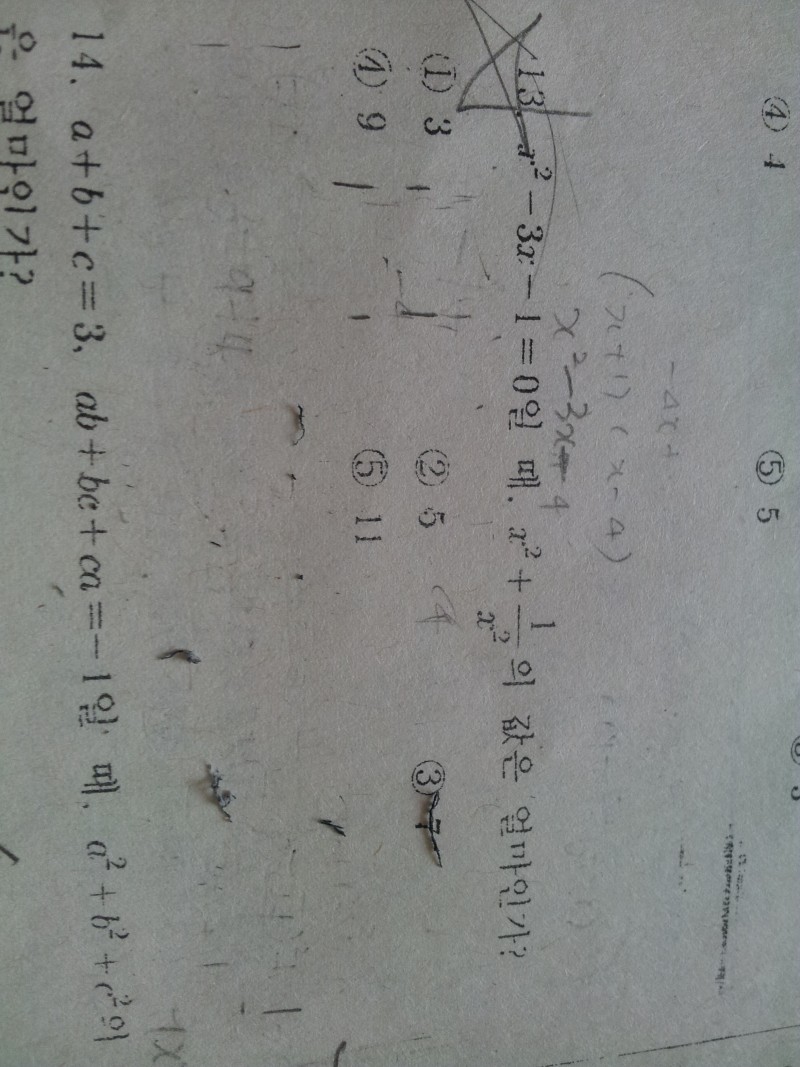 ④ 4 ⑤ 5
-4x+
(x+1)(x-4)
x²-3x-4
13. x² - 3x - 1 = 0일 때, x² + 1/x² 의 값은 얼마인가?
① 3 ② 5 ③ 7
④ 9 ⑤ 11
14. a + b + c = 3, ab + bc + ca = -1일 때, a² + b² + c²의
은 얼마인가?